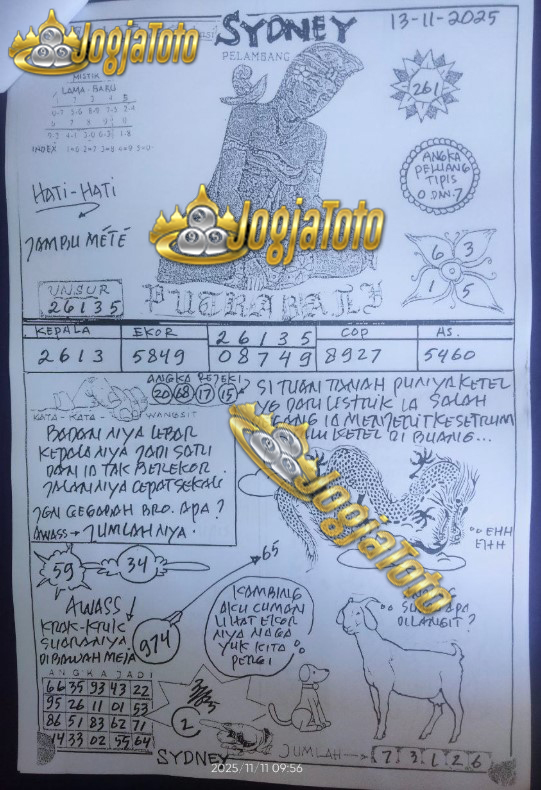 JogjaToto
SYDNEY
13-11-2025
PELAMBANG
MISTIK
LAMA - BARU
INDEX
261
HATI-HATI
JAMBU METÉ
ANGKA
PELUANG
TIPIS
0 DAN 7
JogjaToto
6 3
1 5
UNSUR
26135
PUTRA BALI
KEPALA
EKOR
26135
COP
AS.
2613
5849
08749
8927
5460
ANGKA REJEKI
20 68 17 15
KATA - KATA - WANGSIT
BADAN NYA LEBAR
KEPALA NYA JADI SATU
DAN IA TAK BEREKOR
JALAN NYA CEPAT SEKALI
JGN GEGABAH BRO. APA ?
AWASS → JUMLAH NYA.
SI TUAN TANAH PUNYA KETEL
YG DARI LISTRIK IA SALAH
IA MENJERIT KESETRUM
KETEL DI BUANG...
JogjaToto
EHH
59
34
65
974
AWASS
KRAK-KRUK
SUARANYA
DIBAWAH MEJA
KAMBING
AKU CUMAN
LIHAT EKOR
NYA NAGA
YUK KITA
PERGI
DILANGIT ?
ANGKA JADI
66 35 93 43 22
95 26 11 01 53
86 51 83 62 71
14 33 02 55 64
2
SYDNEY
JUMLAH → 7 3 1 2 6
2025/11/11 09:56